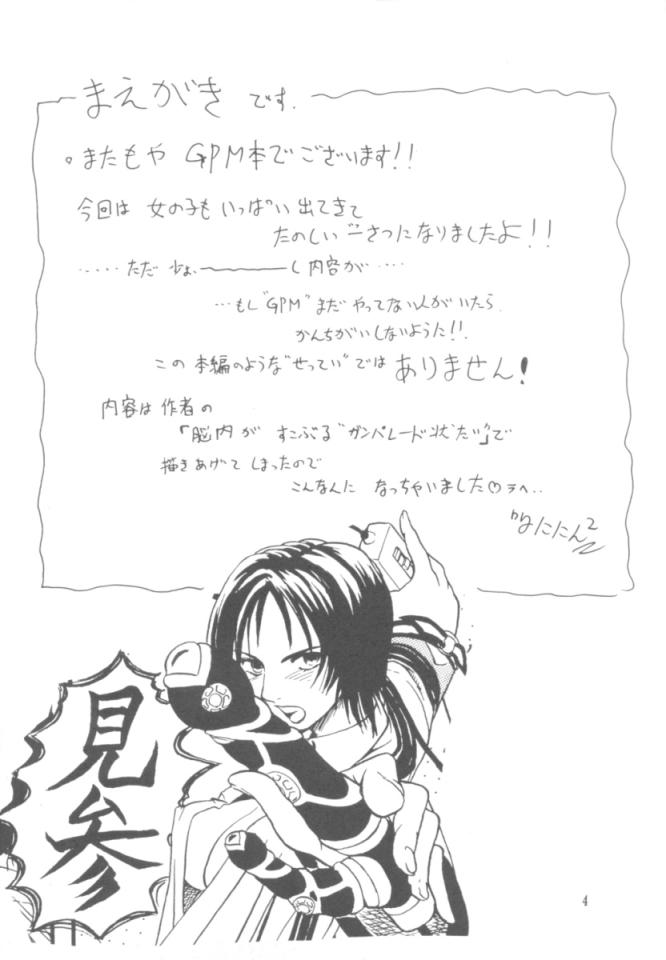 まえがき です.
。またもや GPM本でございます!!
今回は 女の子も いっぱい 出てきて
たのしい 一さつに なりましたよ!!
‥‥‥ ただ 少ょ———し 内容が‥‥
…もし"GPM"まだ やってない人がいたら.
かんちがいしないように!!
この 本編のような"せってい"では ありません!
内容は 作者の
「脳内が すこぶる"ガンパレード状たい"」で
描きあげて しまったので
こんなんに なっちゃいました♡ラヘ..
見参
4